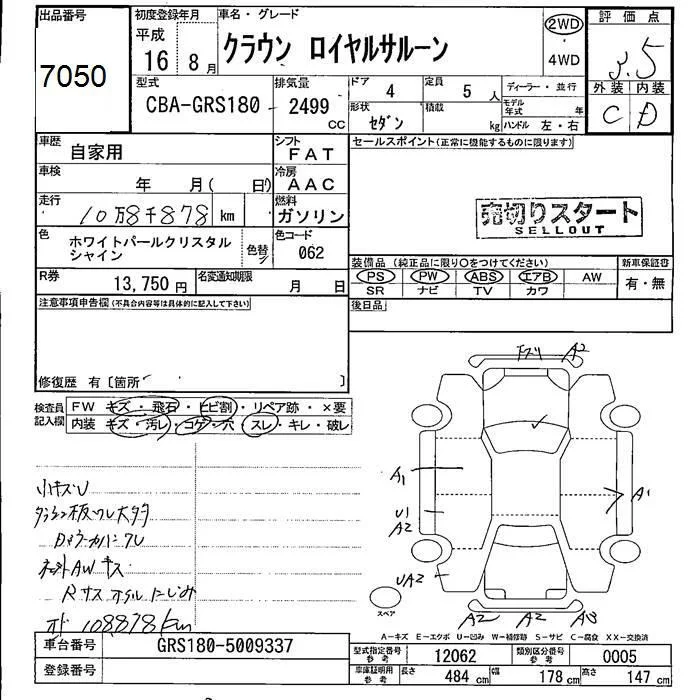 出品番号 初度登録年月 車名・グレード 評価点
7050 平成 16 8月 クラウン ロイヤルサルーン 2WD 4WD 3.5
外装 内装
C D
型式 排気量 ドア 定員 ディーラー・並行
CBA-GRS180 2499 CC 4 5人
形状 積載 モデル年式 年
セダン kg ハンドル 左・右
車歴 シフト セールスポイント(正常に機能するものに限ります)
自家用 FAT
車検 冷房
年 月(日) AAC
走行 燃料
10万8千878 km ガソリン
売切りスタート
SELLOUT
色 色替 色コード
ホワイトパールクリスタル
シャイン 062
装備品(純正品に限り○をつけてください) 新車保証書
R券 名変通知期限 PS PW ABS エアB AW 有・無
13,750円 月 日 SR ナビ TV カワ
注意事項申告欄(不具合内容等は具体的に記入して下さい) 後日品
修復歴 有〔箇所 〕
検査員記入欄 FW キズ・飛石・ヒビ割・リペア跡・×要
内装 キズ・汚レ・コゲ・穴・スレ・キレ・破レ
下ズリ A2
A1 A1
U1
A2
UA2
小キズU
AW キス
108878km
スペア
A2 A2
A-キズ E-エクボ U-凹み W-補修跡 S-サビ C-腐食 XX-交換済
車台番号 GRS180-5009337
型式指定番号 参考 12062 類別区分番号 参考 0005
登録番号
車庫証明用 参考 長さ 484cm 幅 178cm 高さ 147cm